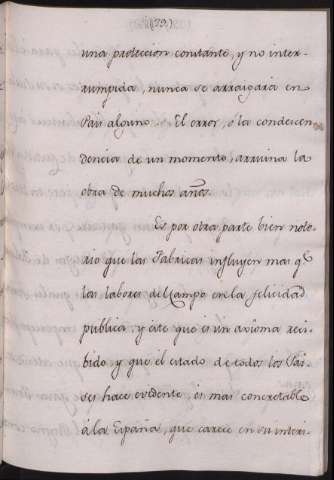 (29)
una proteccion constante, y no inter-
rumpida, nunca se arraygará en
Pais alguno. El error, ó la condecen
dencia de un momento, arruina la
obra de muchos años.
Es por otra parte bien noto-
rio que las Fabricas influyen mas q.e
las labores del Campo en la felicidad
publica, y éste que és un axîoma reci-
bido, y que él estado de todos los Paî-
ses hace evidente, és mas concretable
á la España, que carece en su interi-